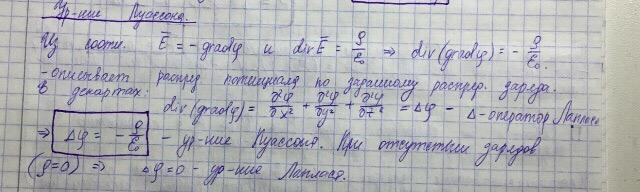 Ур-ние Пуассона.
Из соотн. E̅ = -gradφ и divE̅ = ρ/ε₀ ⇒ div(gradφ) = - ρ/ε₀.
-описывает распред потенциала по заданному распред. заряда.
в декартах: div(gradφ) = ∂²φ/∂x² + ∂²φ/∂y² + ∂²φ/∂z² = Δφ - Δ-оператор Лапласа
⇒ Δφ = - ρ/ε₀ - ур-ние Пуассона. При отсутствии зарядов
(ρ=0) ⇒ Δφ=0 - ур-ние Лапласа.